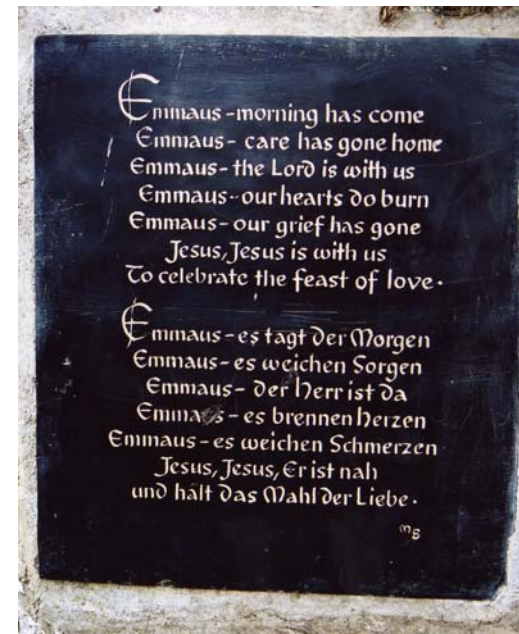 Emmaus - morning has come
Emmaus - care has gone home
Emmaus - the Lord is with us
Emmaus - our hearts do burn
Emmaus - our grief has gone
Jesus, Jesus is with us
To celebrate the feast of love.
Emmaus - es tagt der Morgen
Emmaus - es weichen Sorgen
Emmaus - der Herr ist da
Emmaus - es brennen Herzen
Emmaus - es weichen Schmerzen
Jesus, Jesus, Er ist nah
und hält das Mahl der Liebe.
MB